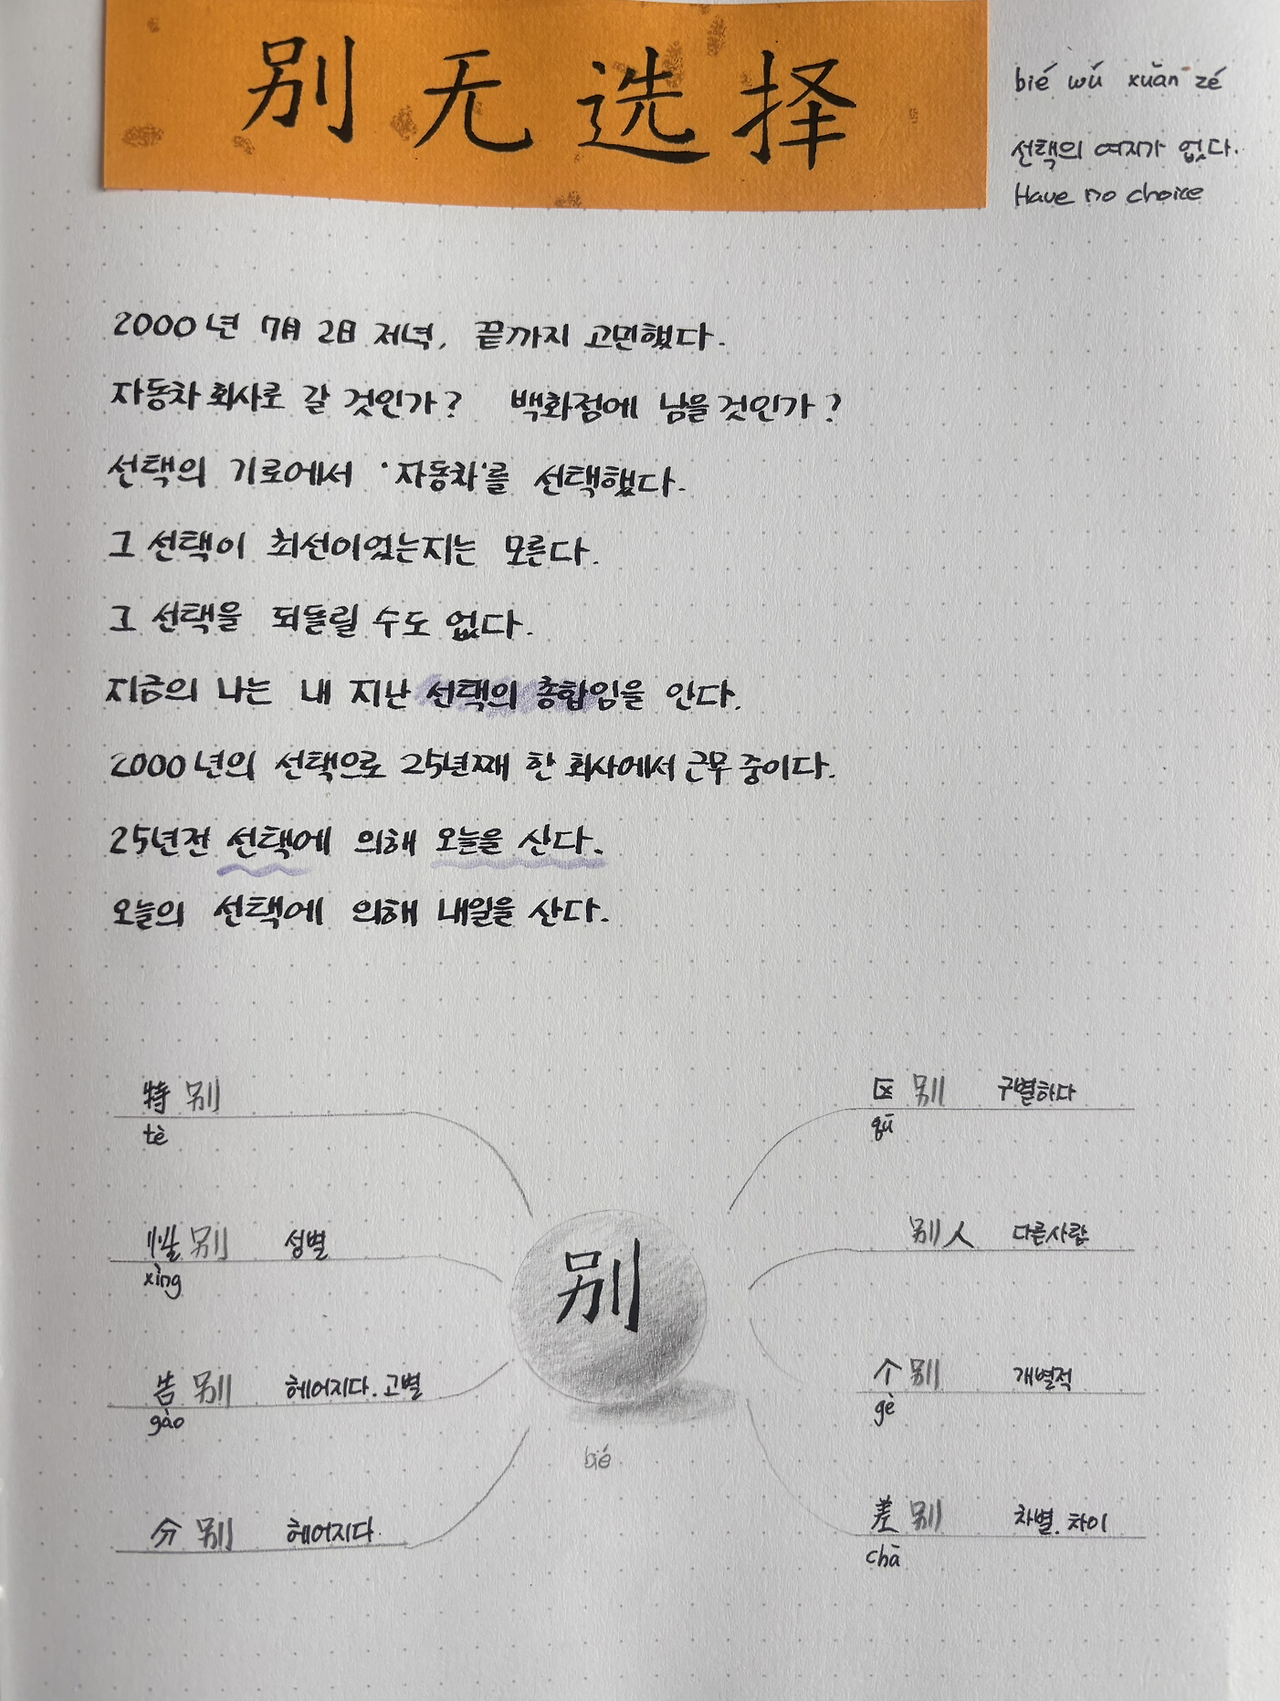 别无选择
bié wú xuǎn zé
선택의 여지가 없다.
Have no choice
2000년 7月 2日 저녁, 끝까지 고민했다.
자동차 회사로 갈 것인가? 백화점에 남을 것인가?
선택의 기로에서 '자동차'를 선택했다.
그 선택이 최선이었는지는 모른다.
그 선택을 되돌릴 수도 없다.
지금의 나는 내 지난 선택의 총합임을 안다.
2000년의 선택으로 25년째 한 회사에서 근무 중이다.
25년전 선택에 의해 오늘을 산다.
오늘의 선택에 의해 내일을 산다.
特别
tè
性别 성별
xìng
告别 헤어지다. 고별
gào
分别 헤어지다
别
bié
区别 구별하다
qū
别人 다른사람
个别 개별적
gè
差别 차별. 차이
chā